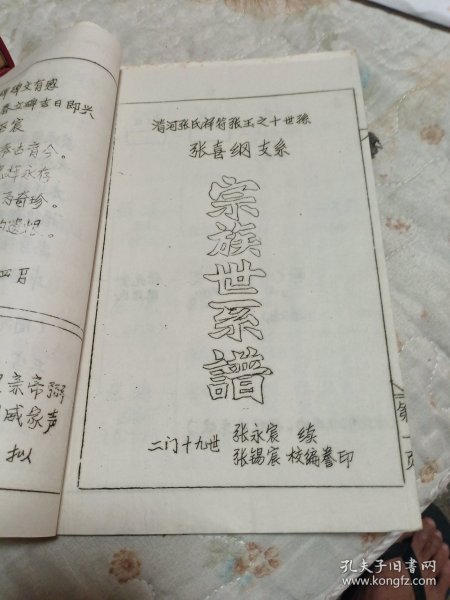 碑碑文有感
春立碑吉日即兴
古音今。
辉永存
奇珍。
四月
宗帝
威家声
拟
清河张氏祥符张王之十世孙
张喜纲 支系
宗族世系谱
二门十九世 张永宸 续
张锡宸 校编誊印
第一页
孔夫子旧书网
www.kongfz.com